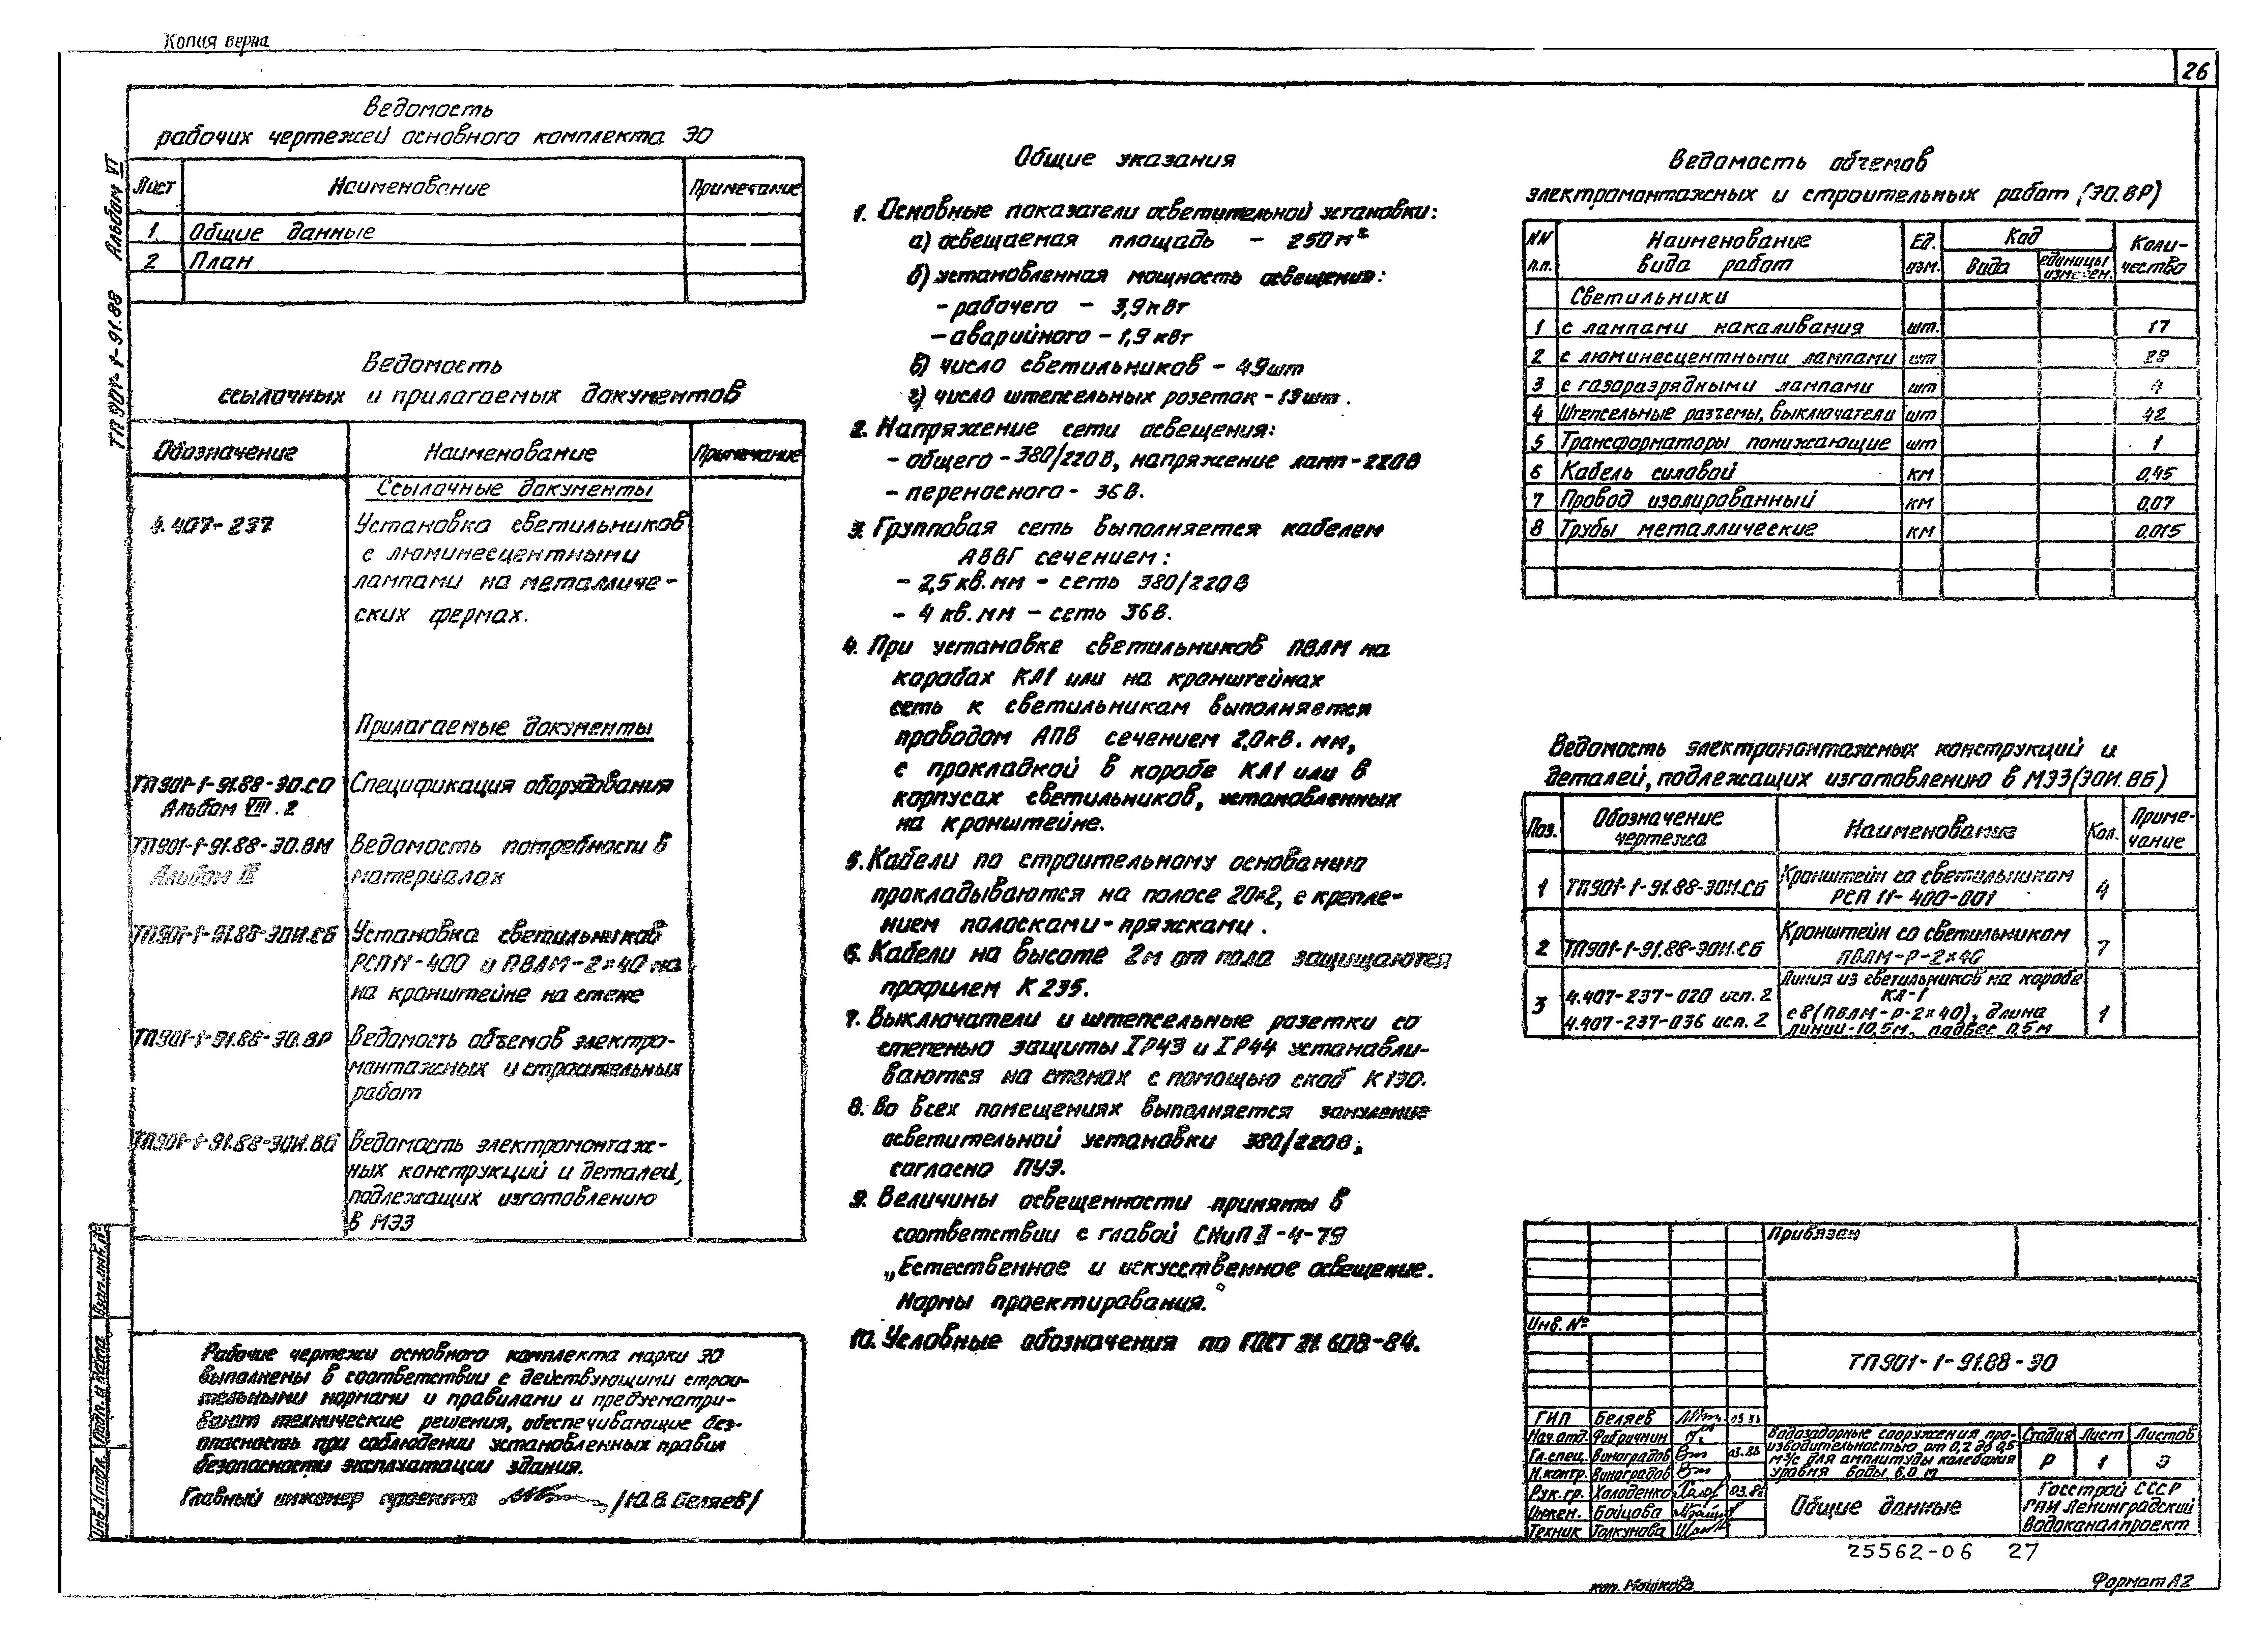 Копия верна
26
Ведомость
рабочих чертежей основного комплекта ЭО
Лист Наименование Примечание
1 Общие данные
2 План
Ведомость
ссылочных и прилагаемых документов
Обозначение Наименование Примечание
Ссылочные документы
4.407-237 Установка светильников
с люминесцентными
лампами на металличе-
ских фермах.
Прилагаемые документы
ТП901-1-91.88-ЭО.СО Спецификация оборудования
Альбом VIII.2
ТП901-1-91.88-ЭО.ВМ Ведомость потребности в
Альбом материалах
ТП901-1-91.88-ЭОИ.СБ Установка светильников
РСП11-400 и ПВЛМ-2×40 на
на кронштейне на стене
ТП901-1-91.88-ЭО.ВР Ведомость объемов электро-
монтажных и строительных
работ
ТП901-1-91.88-ЭОИ.ВБ Ведомость электромонтаж-
ных конструкций и деталей,
подлежащих изготовлению
в МЭЗ
Рабочие чертежи основного комплекта марки ЭО
выполнены в соответствии с действующими строи-
тельными нормами и правилами и предусматри-
вают технические решения, обеспечивающие без-
опасность при соблюдении установленных правил
безопасности эксплуатации здания.
Главный инженер проекта /Ю.В. Беляев/
ТП 901-1-91.88 Альбом VI
Взам.инв.№
Подп. и дата
Инв.№ подл.
Общие указания
1. Основные показатели осветительной установки:
а) освещаемая площадь - 250 м²
б) установленная мощность освещения:
- рабочего - 3,9 кВт
- аварийного - 1,9 кВт
в) число светильников - 49 шт
г) число штепсельных розеток - шт.
2. Напряжение сети освещения:
- общего - 380/220 В, напряжение ламп - 220 В
- переносного - 36 В.
3. Групповая сеть выполняется кабелем
АВВГ сечением:
- 2,5 кв. мм - сеть 380/220 В
- 4 кв. мм - сеть 36 В.
4. При установке светильников ПВЛМ на
коробах КЛ1 или на кронштейнах
сеть к светильникам выполняется
проводом АПВ сечением 2,0 кв. мм,
с прокладкой в коробе КЛ1 или в
корпусах светильников, установленных
на кронштейне.
5. Кабели по строительному основанию
прокладываются на полосе 20×2, с крепле-
нием полосками-пряжками.
6. Кабели на высоте 2м от пола защищаются
профилем К 235.
7. Выключатели и штепсельные розетки со
степенью защиты IP43 и IP44 устанавли-
ваются на стенах с помощью скоб
8. Во всех помещениях выполняется зануление
осветительной установки 380/220В,
согласно ПУЭ.
9. Величины освещенности приняты в
соответствии с главой СНиП II-4-79
„Естественное и искусственное освещение.
Нормы проектирования."
10. Условные обозначения по ГОСТ 21 608-84.
Ведомость объемов
электромонтажных и строительных работ (ЭО.ВР)
NN п.п. Наименование вида работ Ед. изм. Код Коли-
вида единицы измерен. чество
Светильники
1 с лампами накаливания шт. 17
2 с люминесцентными лампами шт 28
3 с газоразрядными лампами шт 4
4 Штепсельные разъемы, выключатели шт 42
5 Трансформаторы понижающие шт 1
6 Кабель силовой км 0,45
7 Провод изолированный км 0,07
8 Трубы металлические км 0,015
Ведомость электромонтажных конструкций и
деталей, подлежащих изготовлению в МЭЗ (ЭОИ.ВБ)
Поз. Обозначение чертежа Наименование Кол. Приме-
чание
1 ТП901-1-91.88-ЭОИ.СБ Кронштейн со светильником
РСП 11-400-001 4
2 ТП901-1-91.88-ЭОИ.СБ Кронштейн со светильником
ПВЛМ-Р-2×40 7
3 4.407-237-020 исп. 2 Линия из светильников на коробе
КЛ-1
4.407-237-036 исп. 2 с 8 (ПВЛМ-Р-2×40), длина 1
линии-10,5м, подвес 0,5м
Привязан
Инв. №
ТП901-1-91.88-ЭО
ГИП Беляев
Нач.отд. Фабричнин
Гл.спец. Виноградов 03.88
Н.контр. Виноградов
Рук.гр. Холоденко 03.88
Инжен. Бойцова
Техник Толкунова
Водозаборные сооружения про-
изводительностью от 0,2 до 0,5
м³/с для амплитуды колебания
уровня воды 6,0 м
Стадия Лист Листов
Р 1 3
Общие данные
Госстрой СССР
ГПИ Ленинградский
Водоканалпроект
25562-06 27
коп. Мошкова
Формат А2